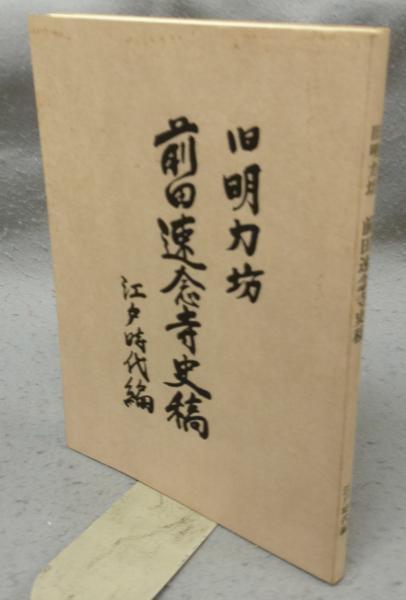 旧明力坊
前田速念寺史稿
江戸時代編
旧明力坊 前田速念寺史稿